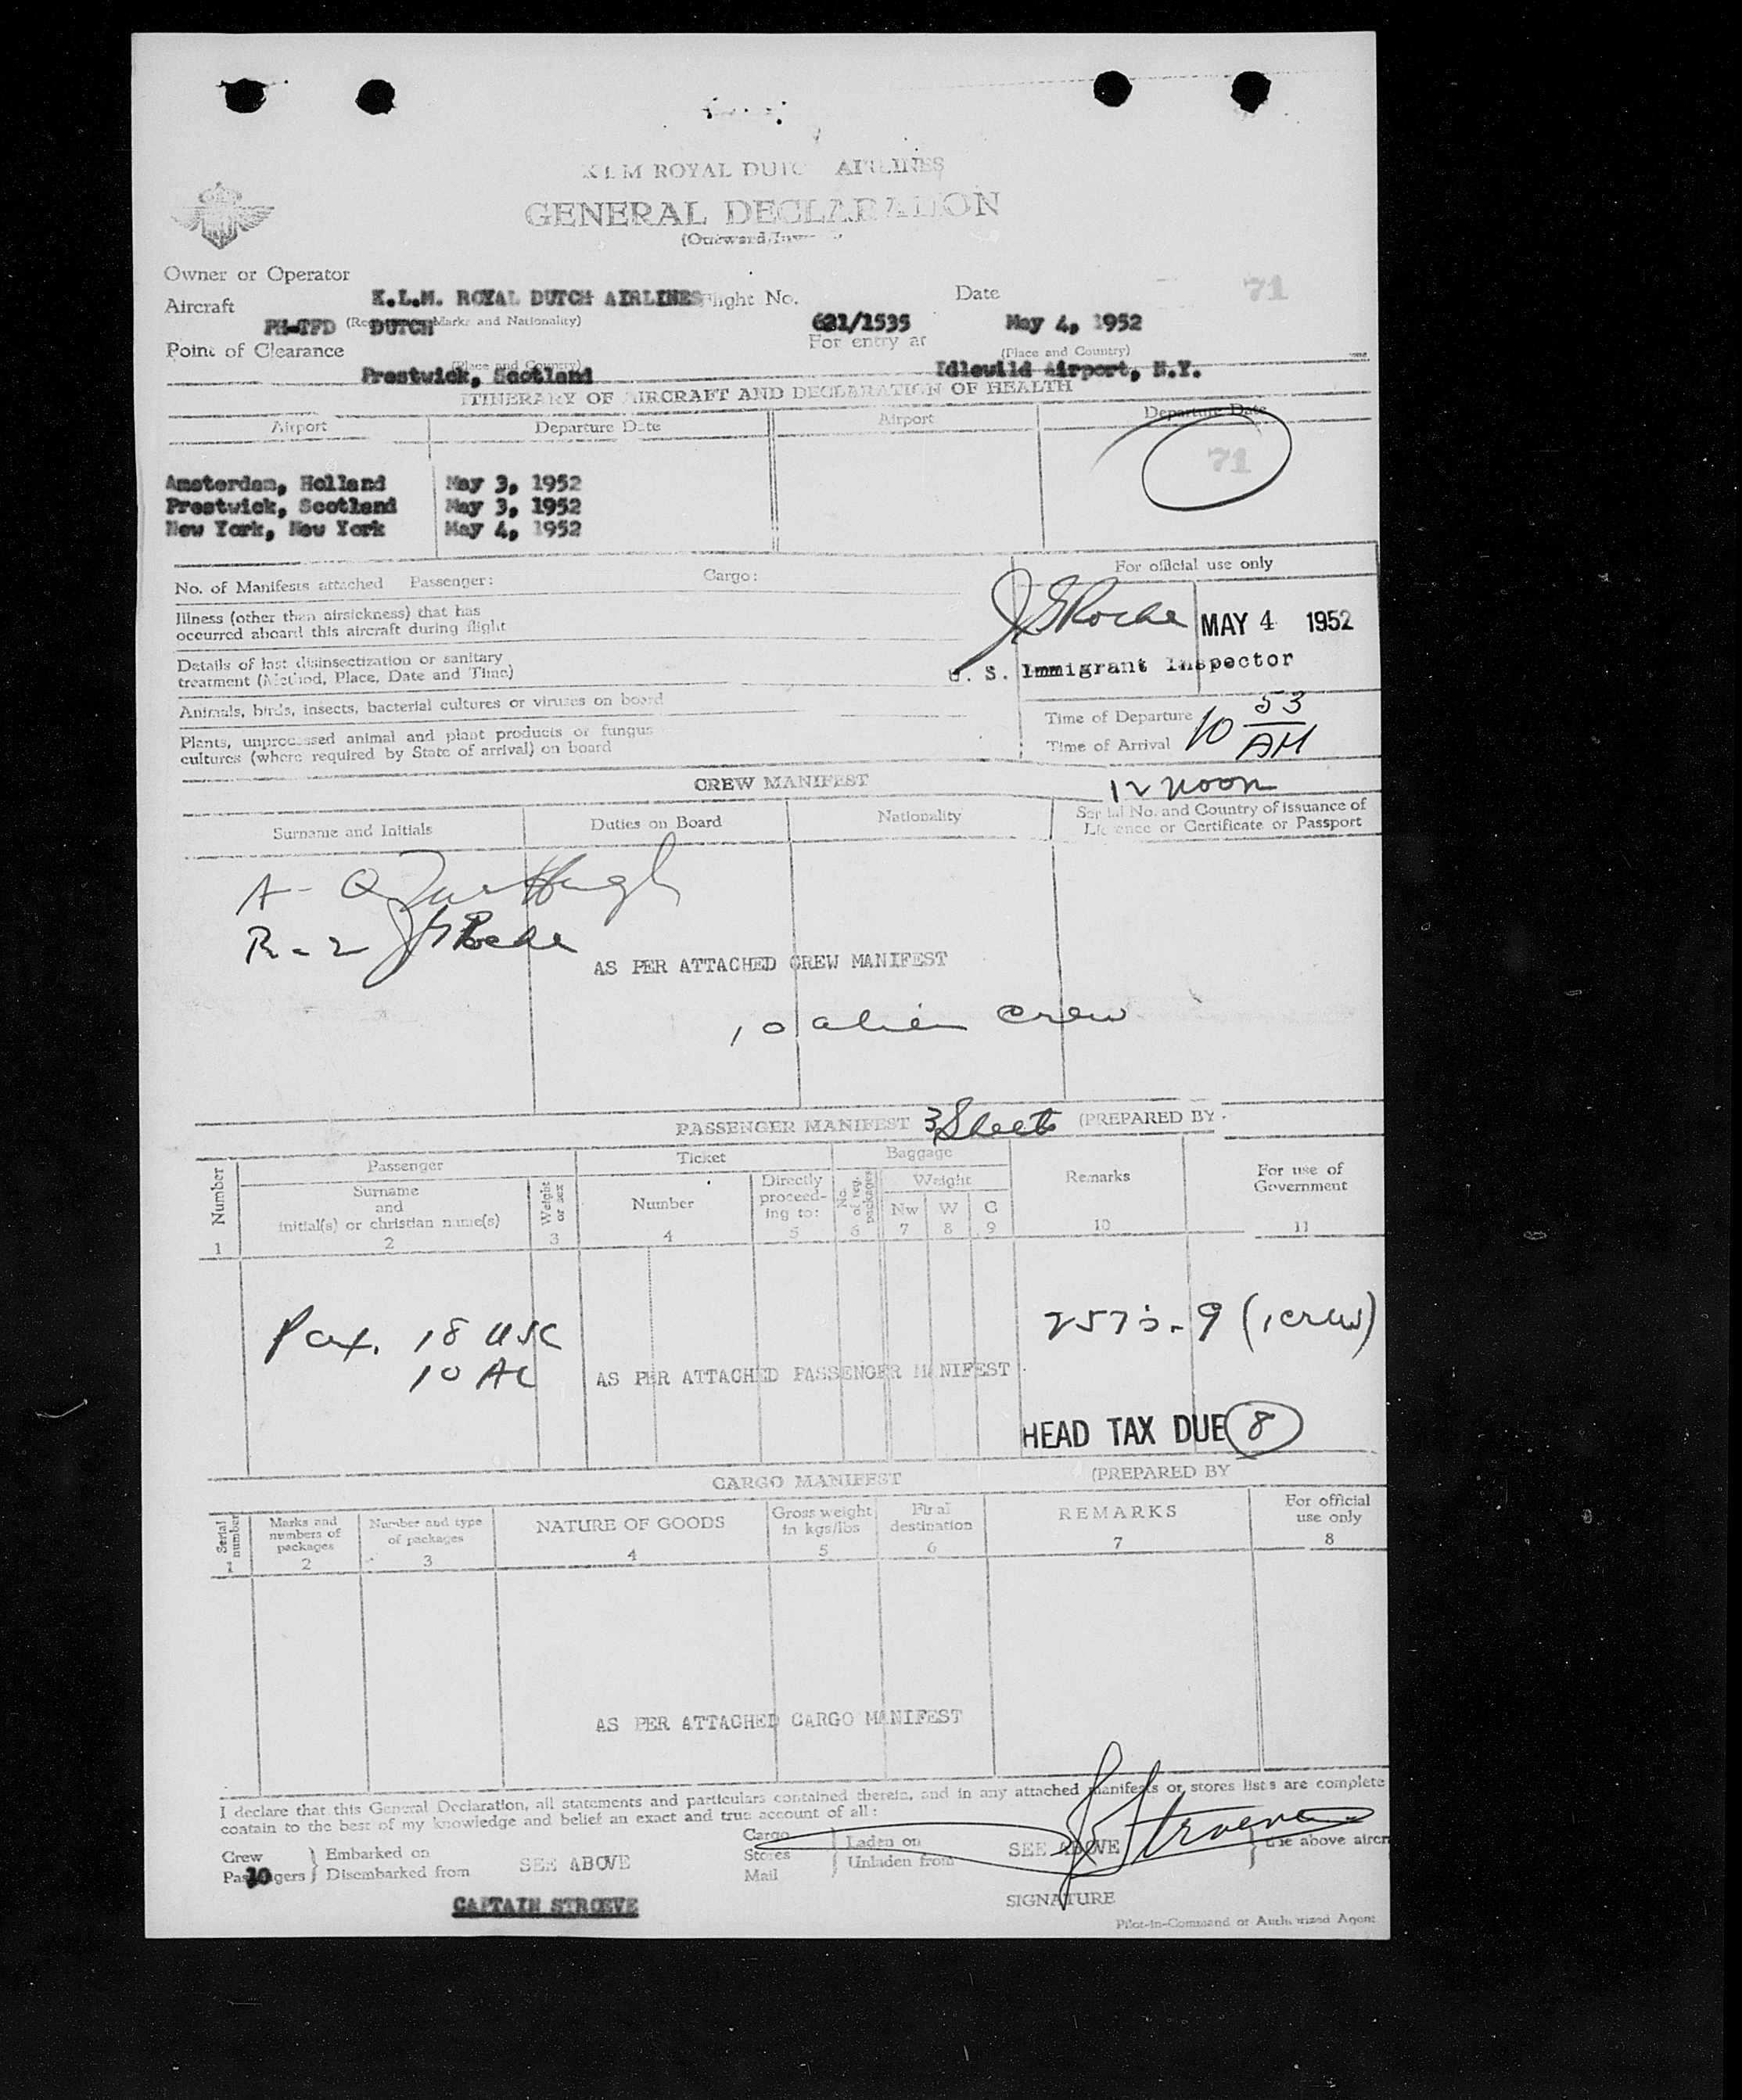 KLM ROYAL DUTC AIRLINES
GENERAL DECLARATION
(Outward/Inw
Owner or Operator
K.L.M. ROYAL DUTCH AIRLINES
Aircraft
Flight No.
Date
71
PH-TFD
DUTCH
Marks and Nationality)
621/1535
May 4, 1952
Point of Clearance
For entry at
(Place and Country)
(Place and Country)
Prestwick, Scotland
Idlewild Airport, N.Y.
ITINERARY OF AIRCRAFT AND DECLARATION OF HEALTH
Airport Departure Date Airport Departure Date
71
Amsterdam, Holland May 3, 1952
Prestwick, Scotland May 3, 1952
New York, New York May 4, 1952
No. of Manifests attached Passenger: Cargo:
For official use only
Illness (other than airsickness) that has
occurred aboard this aircraft during flight
J G Roche MAY 4 1952
Details of last disinsectization or sanitary
treatment (Method, Place, Date and Time)
U. S. Immigrant Inspector
Animals, birds, insects, bacterial cultures or viruses on board
Plants, unprocessed animal and plant products or fungus
cultures (where required by State of arrival) on board
Time of Departure
Time of Arrival
10 53 AM
12 noon
CREW MANIFEST
Surname and Initials Duties on Board Nationality Serial No. and Country of issuance of
Licence or Certificate or Passport
A-
R-2 J G Roche
AS PER ATTACHED CREW MANIFEST
10 alien crew
PASSENGER MANIFEST 3 Sheets (PREPARED BY
Number
Passenger
Ticket
Baggage
Remarks
For use of
Government
Surname
and
initial(s) or christian name(s)
Weight
or sex
Number
Directly
proceed-
ing to:
No.
of reg.
packages
Weight
Nw W C
1 2 3 4 5 6 7 8 9 10 11
Pax. 18 USC
10 AL
2575-9 (1 crew)
AS PER ATTACHED PASSENGER MANIFEST
HEAD TAX DUE 8
CARGO MANIFEST (PREPARED BY
Serial
number
Marks and
numbers of
packages
Number and type
of packages
NATURE OF GOODS
Gross weight
in kgs/lbs
Final
destination
REMARKS
For official
use only
1 2 3 4 5 6 7 8
AS PER ATTACHED CARGO MANIFEST
I declare that this General Declaration, all statements and particulars contained therein, and in any attached manifests or stores lists are complete
contain to the best of my knowledge and belief an exact and true account of all:
Crew
10
Embarked on
Disembarked from
SEE ABOVE
Cargo
Stores
Mail
Laden on
Unladen from
SEE ABOVE
the above aircr
Stroeve
CAPTAIN STROEVE
SIGNATURE
Pilot-in-Command or Authorized Agent